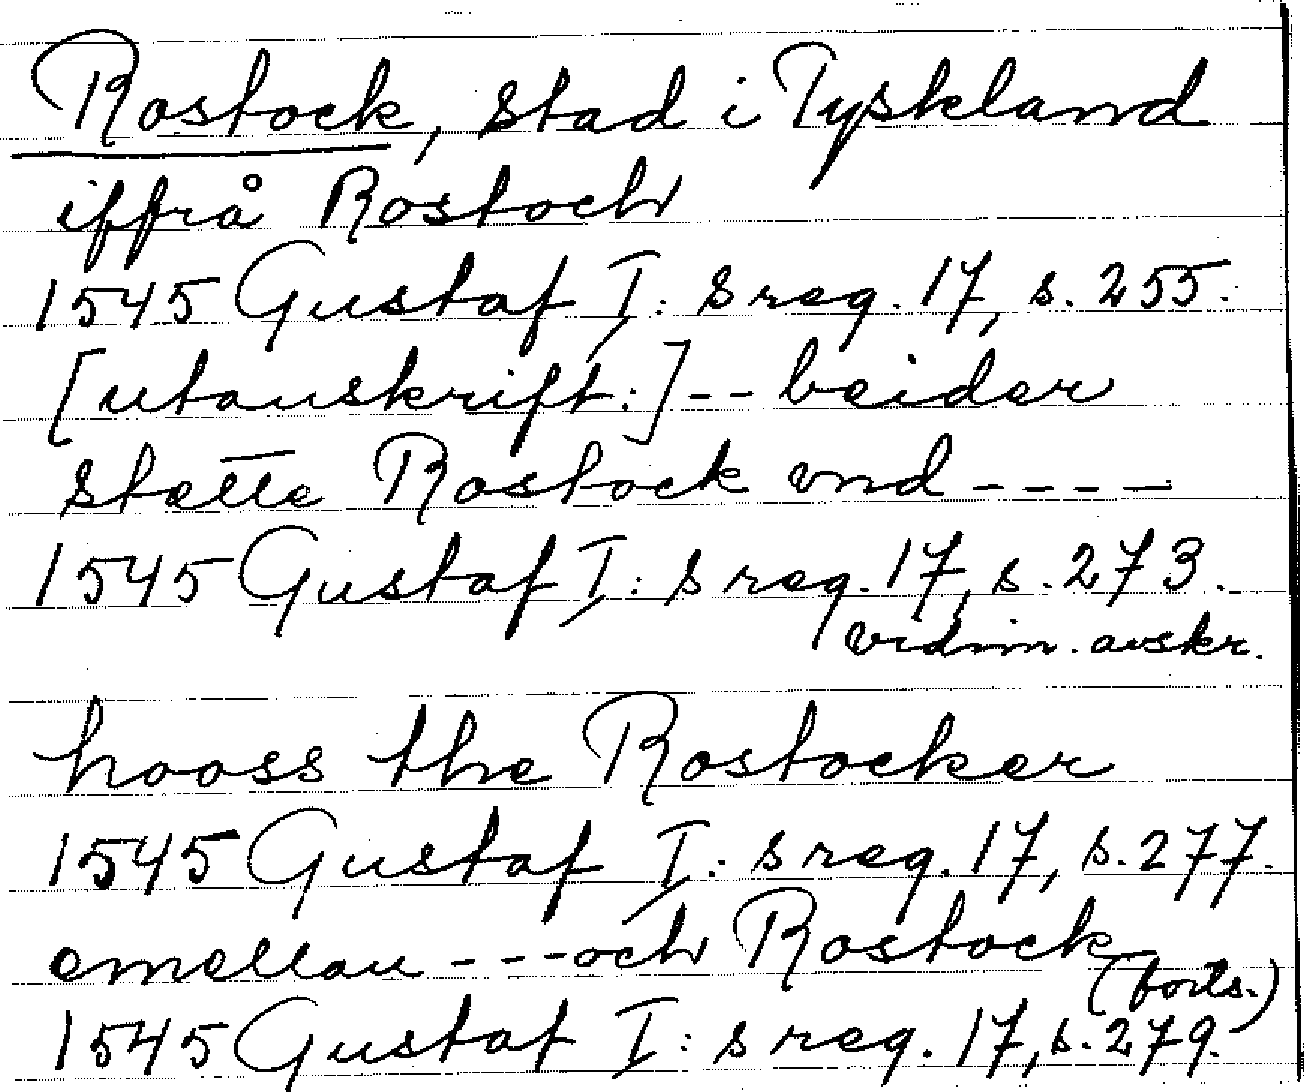 Rostock, stad i Tyskland
iffrå Rostoch
1545 Gustaf I: s reg. 17, s. 255.
[utanskrift:] -- beider
stætte Rostock vnd ----
1545 Gustaf I: s reg. 17, s. 273.
vidim. avskr.
hooss the Rostocker
1545 Gustaf I: s reg. 17, s. 277.
emellan --- och Rostock
(forts.)
1545 Gustaf I: s reg. 17, s. 279.